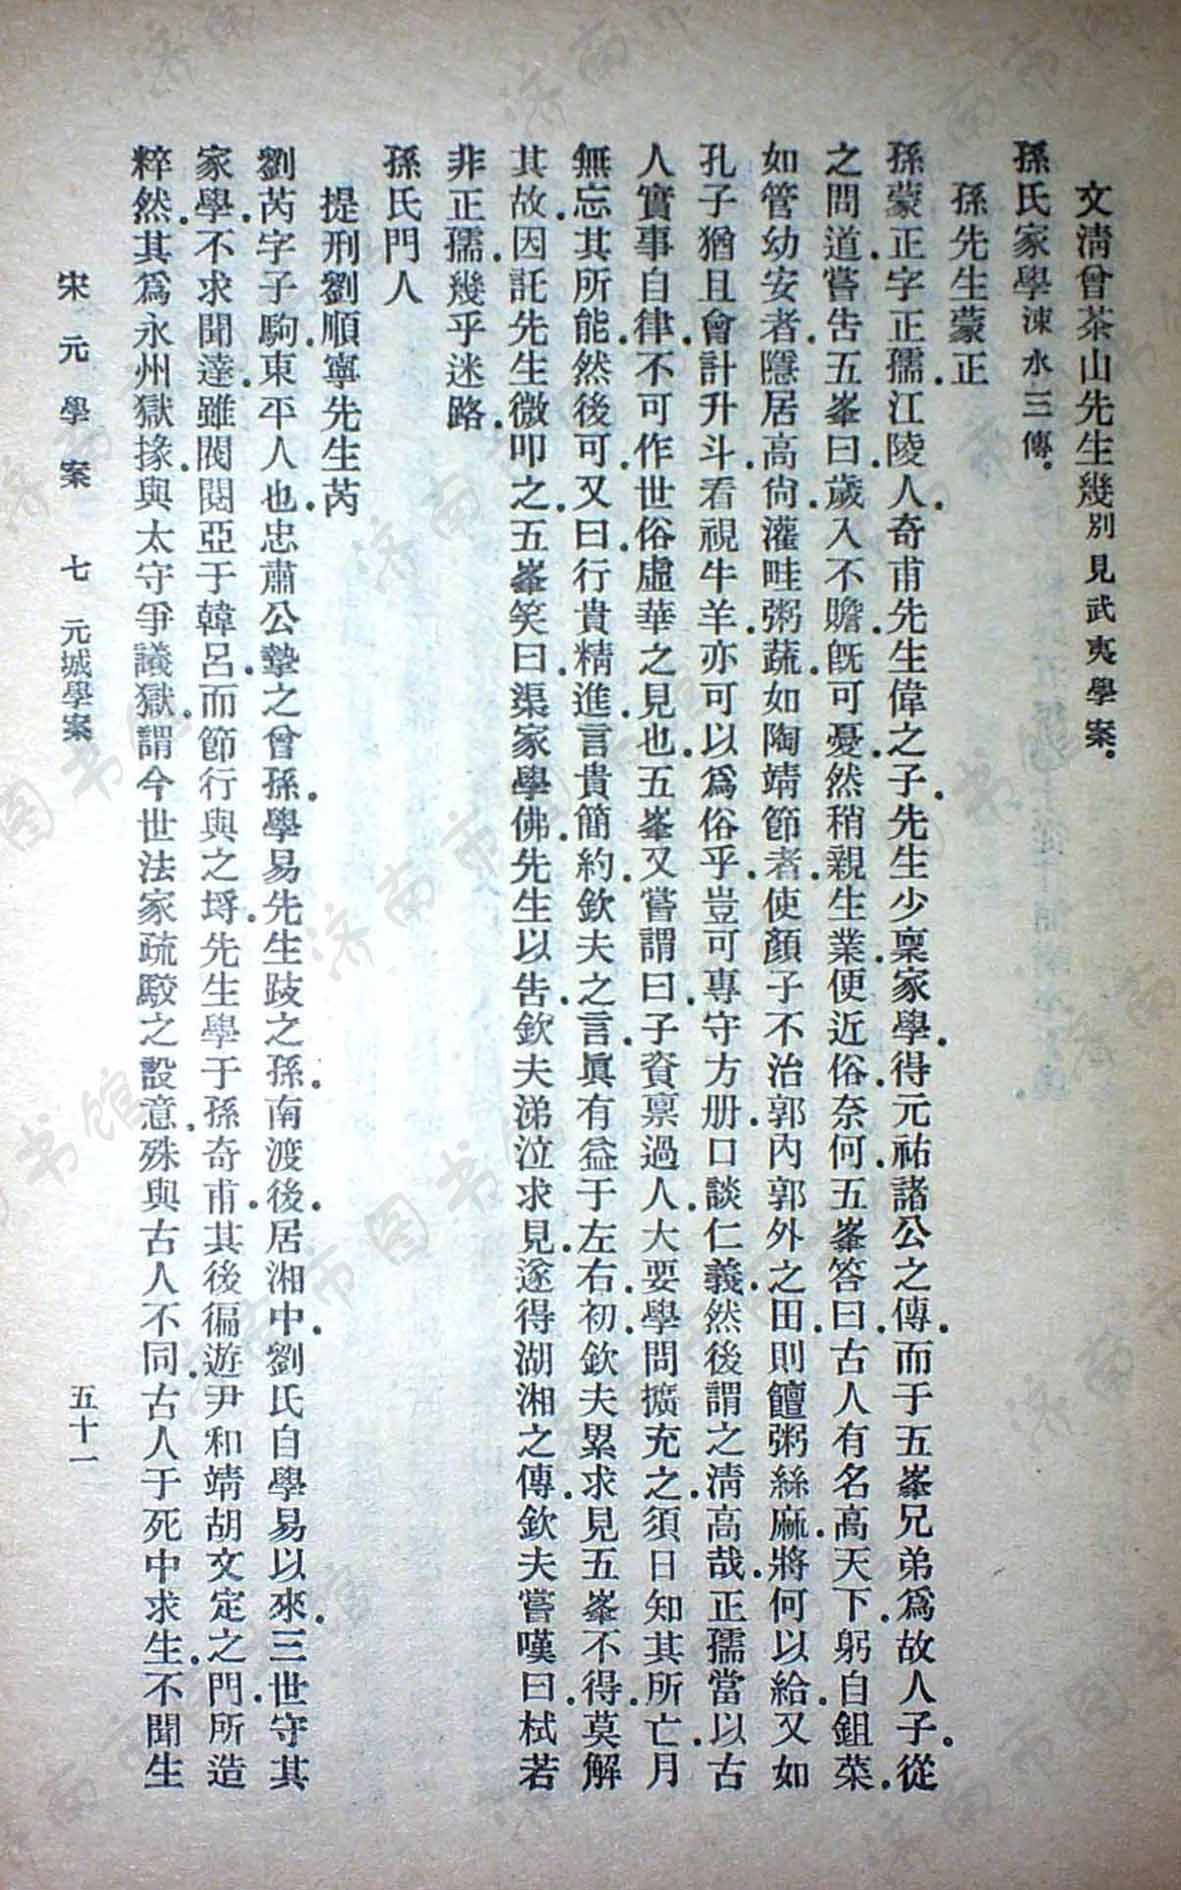 文清曾茶山先生幾別見武夷學案。
孫氏家學涑水三傳。
孫先生蒙正
孫蒙正字正孺．江陵人．奇甫先生偉之子．先生少稟家學．得元祐諸公之傳．而于五峯兄弟爲故人子．從
之問道．嘗告五峯曰．歲入不贍．旣可憂．然稍親生業．便近俗．奈何．五峯答曰．古人有名高天下．躬自鉏菜．
如管幼安者．隱居高尙．灌畦粥蔬．如陶靖節者．使顏子不治郭內郭外之田．則饘粥絲麻．將何以給．又如
孔子猶且會計升斗．看視牛羊．亦可以爲俗乎．豈可專守方册．口談仁義．然後謂之淸高哉．正孺當以古
人實事自律．不可作世俗虛華之見也．五峯又嘗謂曰．子資稟過人．大要學問擴充之．須日知其所亡．月
無忘其所能．然後可．又曰．行貴精進．言貴簡約．欽夫之言．眞有益于左右．初．欽夫累求見五峯．不得．莫解
其故．因託先生微叩之．五峯笑曰．渠家學佛．先生以告．欽夫涕泣求見．遂得湖湘之傳．欽夫嘗嘆曰．栻若
非正孺．幾乎迷路．
孫氏門人
提刑劉順寧先生芮
劉芮字子駒．東平人也．忠肅公摯之曾孫．學易先生跂之孫．南渡後．居湘中．劉氏自學易以來．三世守其
家學．不求聞達．雖閥閱亞于韓呂．而節行與之埒．先生學于孫奇甫．其後徧遊尹和靖胡文定之門．所造
粹然．其爲永州獄掾．與太守爭議獄．謂今世法家疏駮之設意．殊與古人不同．古人于死中求生．不聞生
宋元學案 七 元城學案 五十一
济南市图书馆